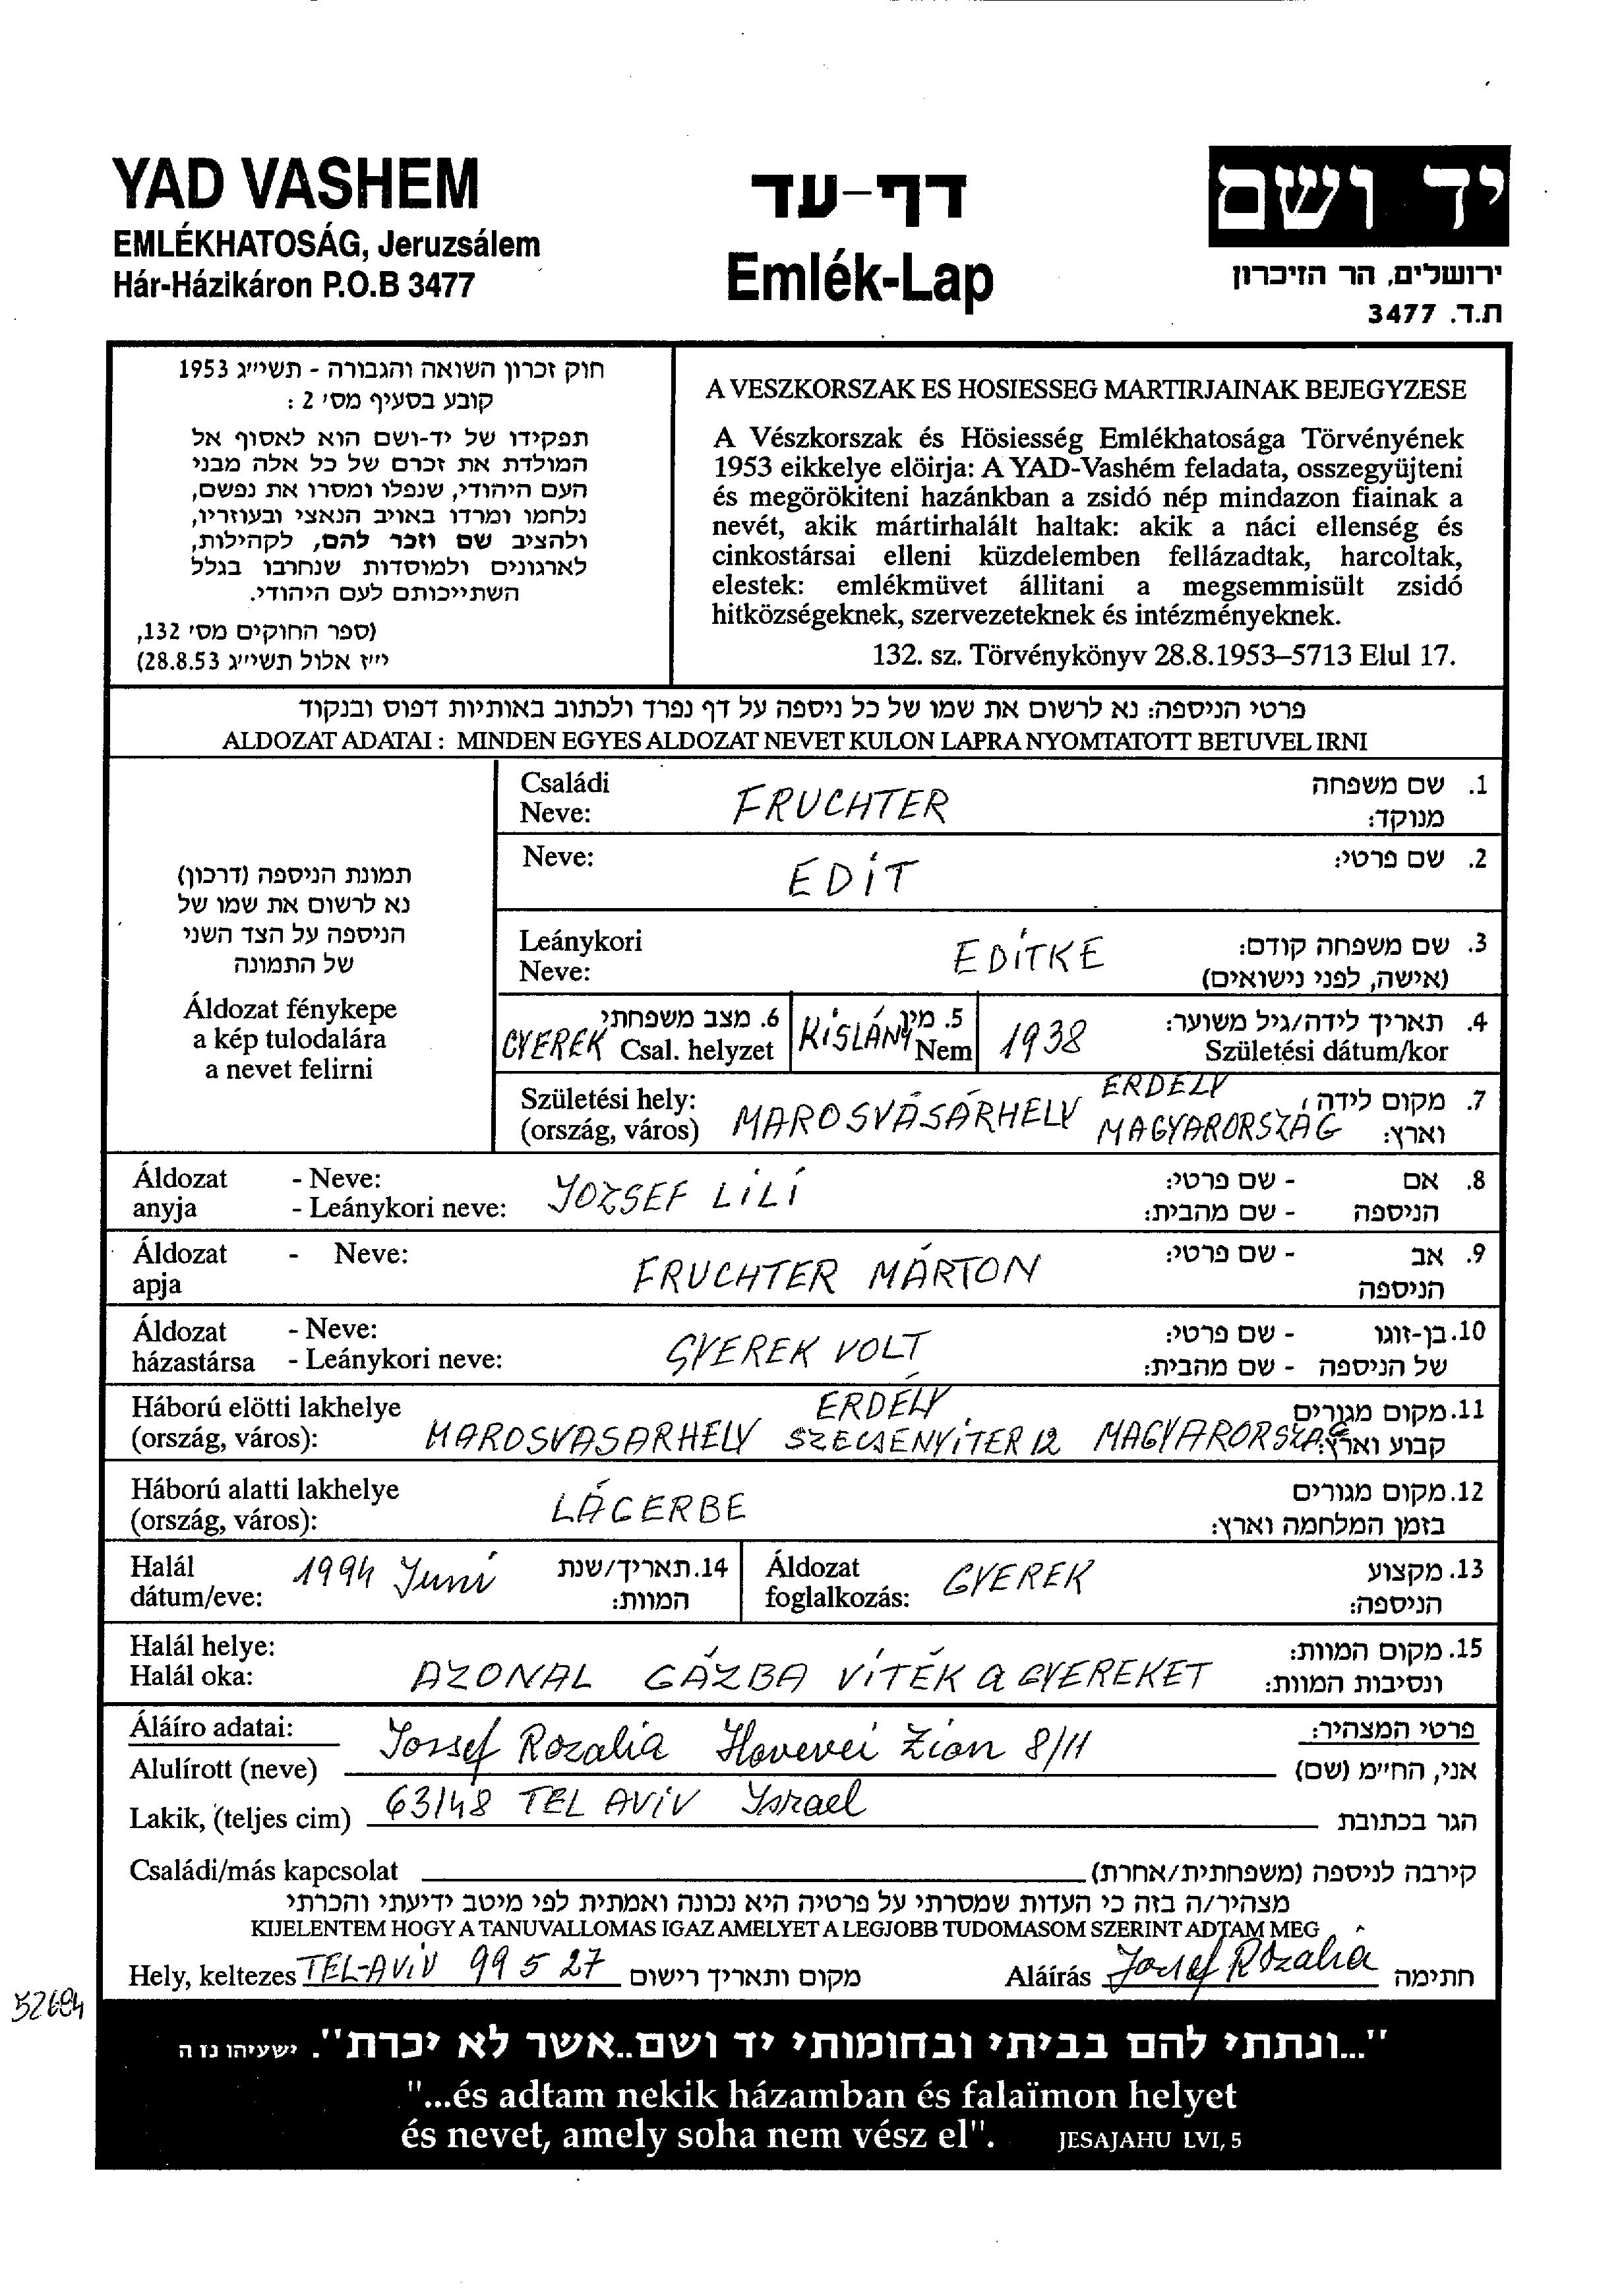 YAD VASHEM
EMLÉKHATOSÁG, Jeruzsálem
Hár-Házikáron P.O.B 3477
דף-עד
Emlék-Lap
יד ושם
ירושלים, הר הזיכרון
ת.ד. 3477
חוק זכרון השואה והגבורה - תשי״ג 1953
קובע בסעיף מס' 2 :
תפקידו של יד-ושם הוא לאסוף אל
המולדת את זכרם של כל אלה מבני
העם היהודי, שנפלו ומסרו את נפשם,
נלחמו ומרדו באויב הנאצי ובעוזריו,
ולהציב שם וזכר להם, לקהילות,
לארגונים ולמוסדות שנחרבו בגלל
השתייכותם לעם היהודי.
(ספר החוקים מס' 132,
י״ז אלול תשי״ג 28.8.53)
A VESZKORSZAK ES HOSIESSEG MARTIRJAINAK BEJEGYZESE
A Vészkorszak és Hösiesség Emlékhatosága Törvényének
1953 eikkelye elöirja: A YAD-Vashém feladata, osszegyüjteni
és megörökiteni hazánkban a zsidó nép mindazon fiainak a
nevét, akik mártirhalált haltak: akik a náci ellenség és
cinkostársai elleni küzdelemben fellázadtak, harcoltak,
elestek: emlékmüvet állitani a megsemmisült zsidó
hitközségeknek, szervezeteknek és intézményeknek.
132. sz. Törvénykönyv 28.8.1953–5713 Elul 17.
פרטי הניספה: נא לרשום את שמו של כל ניספה על דף נפרד ולכתוב באותיות דפוס ובנקוד
ALDOZAT ADATAI : MINDEN EGYES ALDOZAT NEVET KULON LAPRA NYOMTATOTT BETUVEL IRNI
תמונת הניספה (דרכון)
נא לרשום את שמו של
הניספה על הצד השני
של התמונה
Áldozat fénykepe
a kép tulodalára
a nevet felirni
Családi
Neve: FRUCHTER
1. שם משפחה
מנוקד:
Neve: EDIT 2. שם פרטי:
Leánykori
Neve: EDITKE
3. שם משפחה קודם:
(אישה, לפני נישואים)
6. מצב משפחתי
GYEREK Csal. helyzet
5. מין
KISLÁNY Nem
1938
4. תאריך לידה/גיל משוער:
Születési dátum/kor
Születési hely:
(ország, város) MAROSVÁSÁRHELY ERDELY
MAGYARORSZAG
7. מקום לידה
וארץ:
Áldozat - Neve:
anyja - Leánykori neve: JOZSEF LILI
8. אם - שם פרטי:
הניספה - שם מהבית:
Áldozat - Neve:
apja FRUCHTER MÁRTON
9. אב - שם פרטי:
הניספה
Áldozat - Neve:
házastársa - Leánykori neve: GYEREK VOLT
10. בן-זוגו - שם פרטי:
של הניספה - שם מהבית:
Háború elötti lakhelye
(ország, város): MAROSVASARHELY ERDÉLY
SZECSENYITER 12 MAGYARORSZAG
11. מקום מגורים
קבוע וארץ:
Háború alatti lakhelye
(ország, város): LÁGERBE
12. מקום מגורים
בזמן המלחמה וארץ:
Halál
dátum/eve: 1994 Juni
14. תאריך/שנת
המוות:
Áldozat
foglalkozás: GYEREK
13. מקצוע
הניספה:
Halál helye:
Halál oka: AZONAL GÁZBA VITÉK a GYEREKET
15. מקום המוות:
ונסיבות המוות:
Áláíro adatai: פרטי המצהיר:
Alulírott (neve) Jozsef Rozalia Hovevei Zion 8/11 אני, החי״מ (שם)
Lakik, (teljes cim) 63148 TEL AVIV Israel הגר בכתובת
Családi/más kapcsolat קירבה לניספה (משפחתית/אחרת)
מצהיר/ה בזה כי העדות שמסרתי על פרטיה היא נכונה ואמתית לפי מיטב ידיעתי והכרתי
KIJELENTEM HOGY A TANUVALLOMAS IGAZ AMELYET A LEGJOBB TUDOMASOM SZERINT ADTAM MEG
Hely, keltezes TEL-AVIV 99 5 27 מקום ותאריך רישום Aláírás Jozsef Rozalia חתימה
52694
"...ונתתי להם בביתי ובחומותי יד ושם..אשר לא יכרת". ישעיהו נז ה
"...és adtam nekik házamban és falaïmon helyet
és nevet, amely soha nem vész el". JESAJAHU LVI, 5